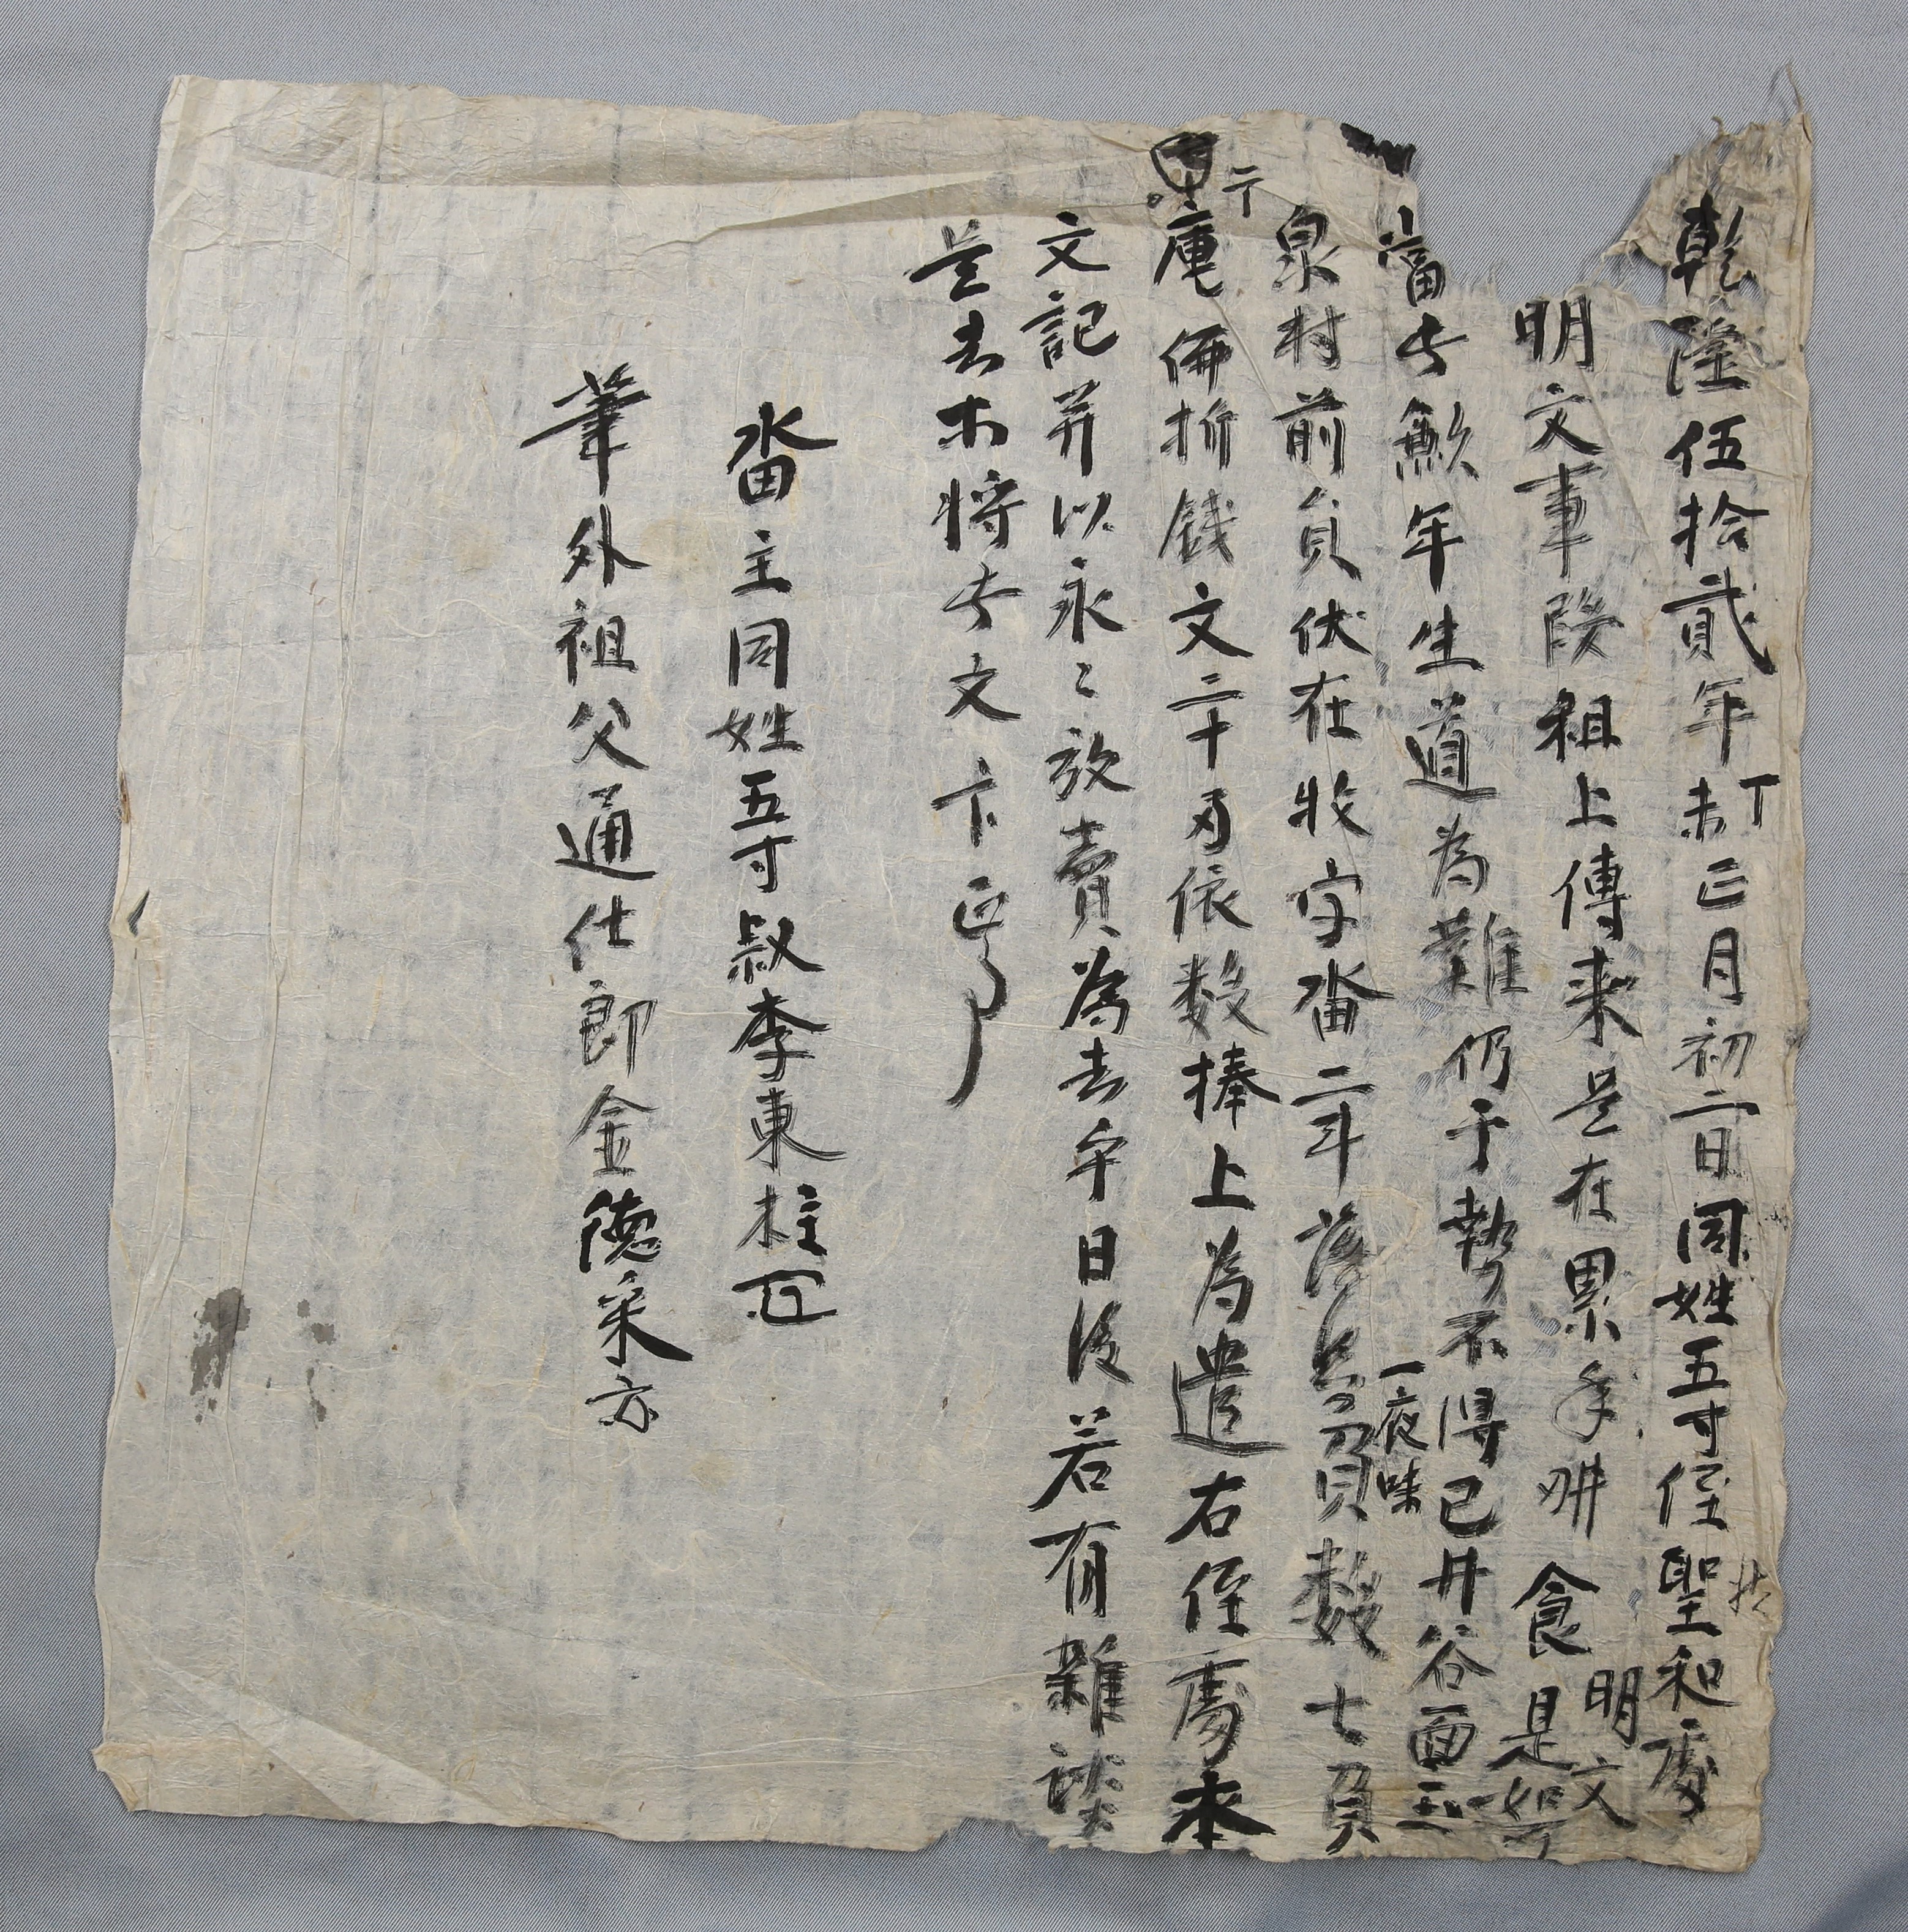 乾隆伍拾貳年丁未正月初二日同姓五寸侄聖和處明文
明文事段祖上傳來是在累年畊食是如可
當此歉年生道為難仍于勢不得已井谷面玉
泉村前員伏在收字畓二斗落只負數七負
一夜味
庫㐣折錢文二十刄依數捧上為遣右侄處本
文記幷以永々放賣為去乎日後若有雜談
是去木將此文卞正事
畓主同姓五寸叔李東柱
筆外祖父通仕郎金德采